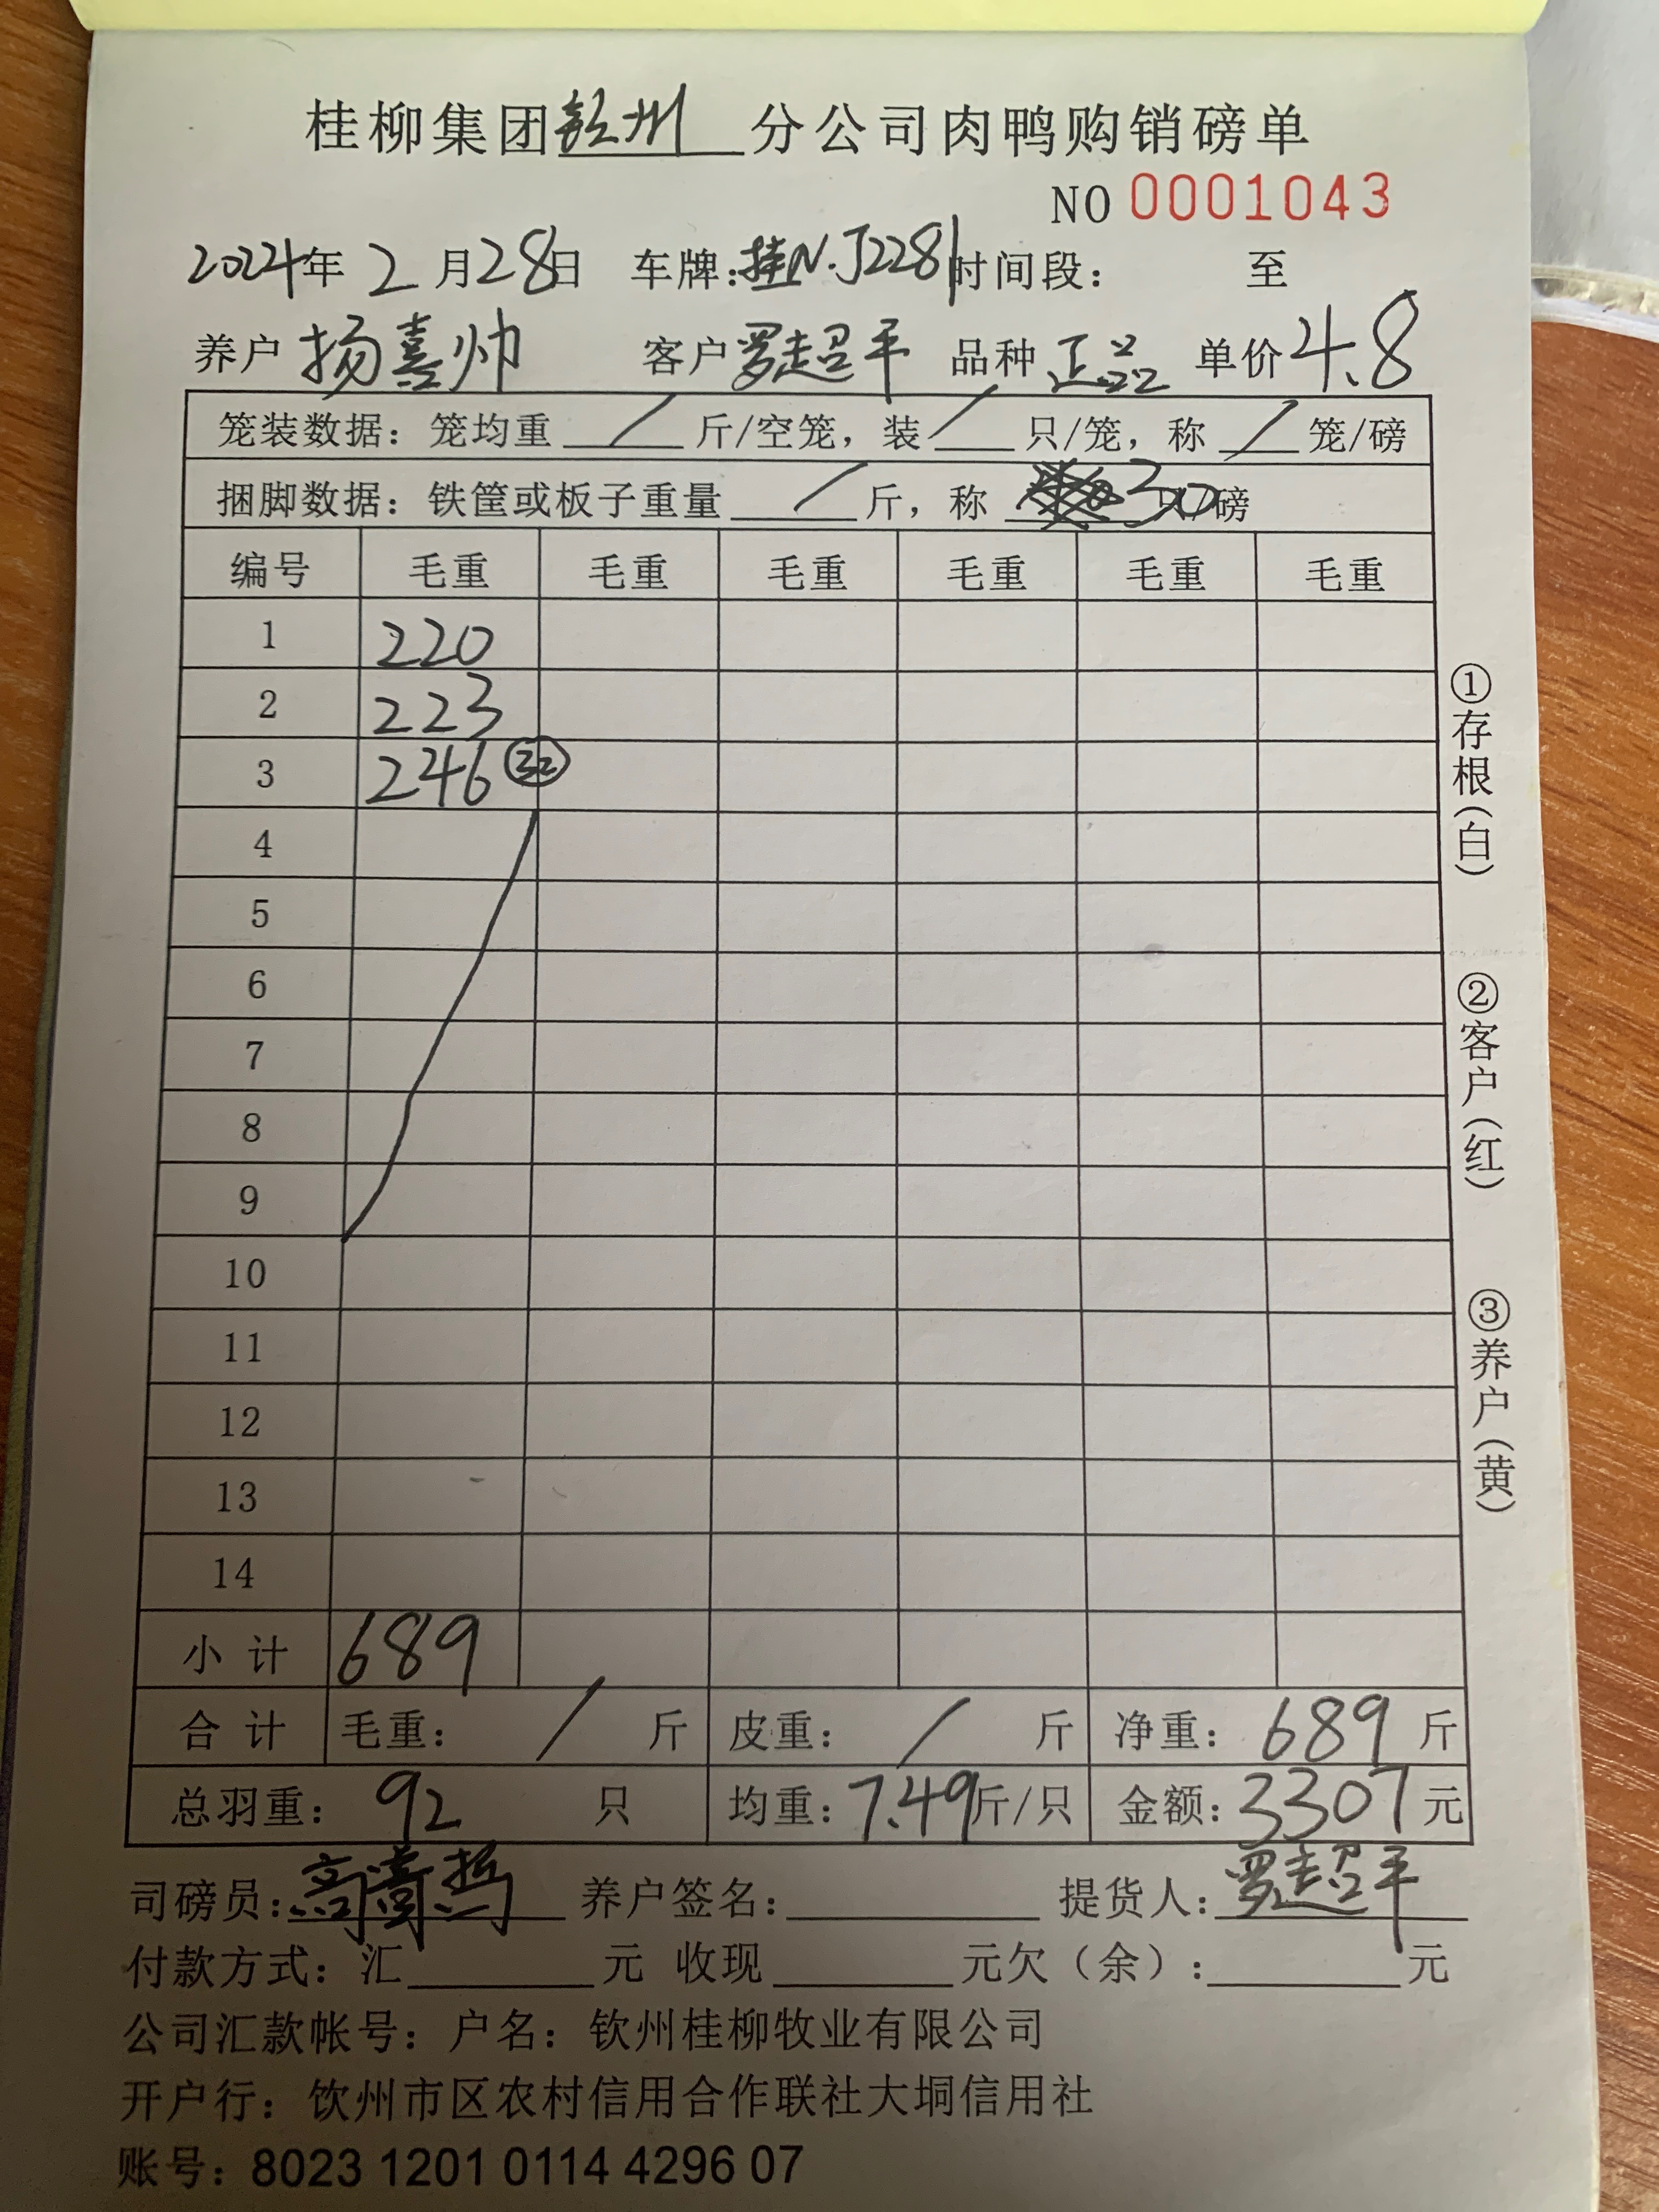 桂柳集团钦州分公司肉鸭购销磅单
NO 0001043
2024年2月28日 车牌:桂N.J2281 时间段: 至
养户 扬喜帅 客户 罗超平 品种 正品 单价 4.8
笼装数据: 笼均重 / 斤/空笼, 装 / 只/笼, 称 / 笼/磅
捆脚数据: 铁筐或板子重量 / 斤, 称 30 只/磅
编号 毛重 毛重 毛重 毛重 毛重 毛重
1 220
2 223
3 246 ㉜
4
5
6
7
8
9
10
11
12
13
14
小计 689
合计 毛重: / 斤 皮重: / 斤 净重: 689 斤
总羽重: 92 只 均重: 7.49 斤/只 金额: 3307 元
司磅员: 养户签名: 提货人: 罗超平
付款方式: 汇 元 收现 元欠(余): 元
公司汇款帐号: 户名: 钦州桂柳牧业有限公司
开户行: 钦州市区农村信用合作联社大垌信用社
账号: 8023 1201 0114 4296 07
①存根(白)
②客户(红)
③养户(黄)